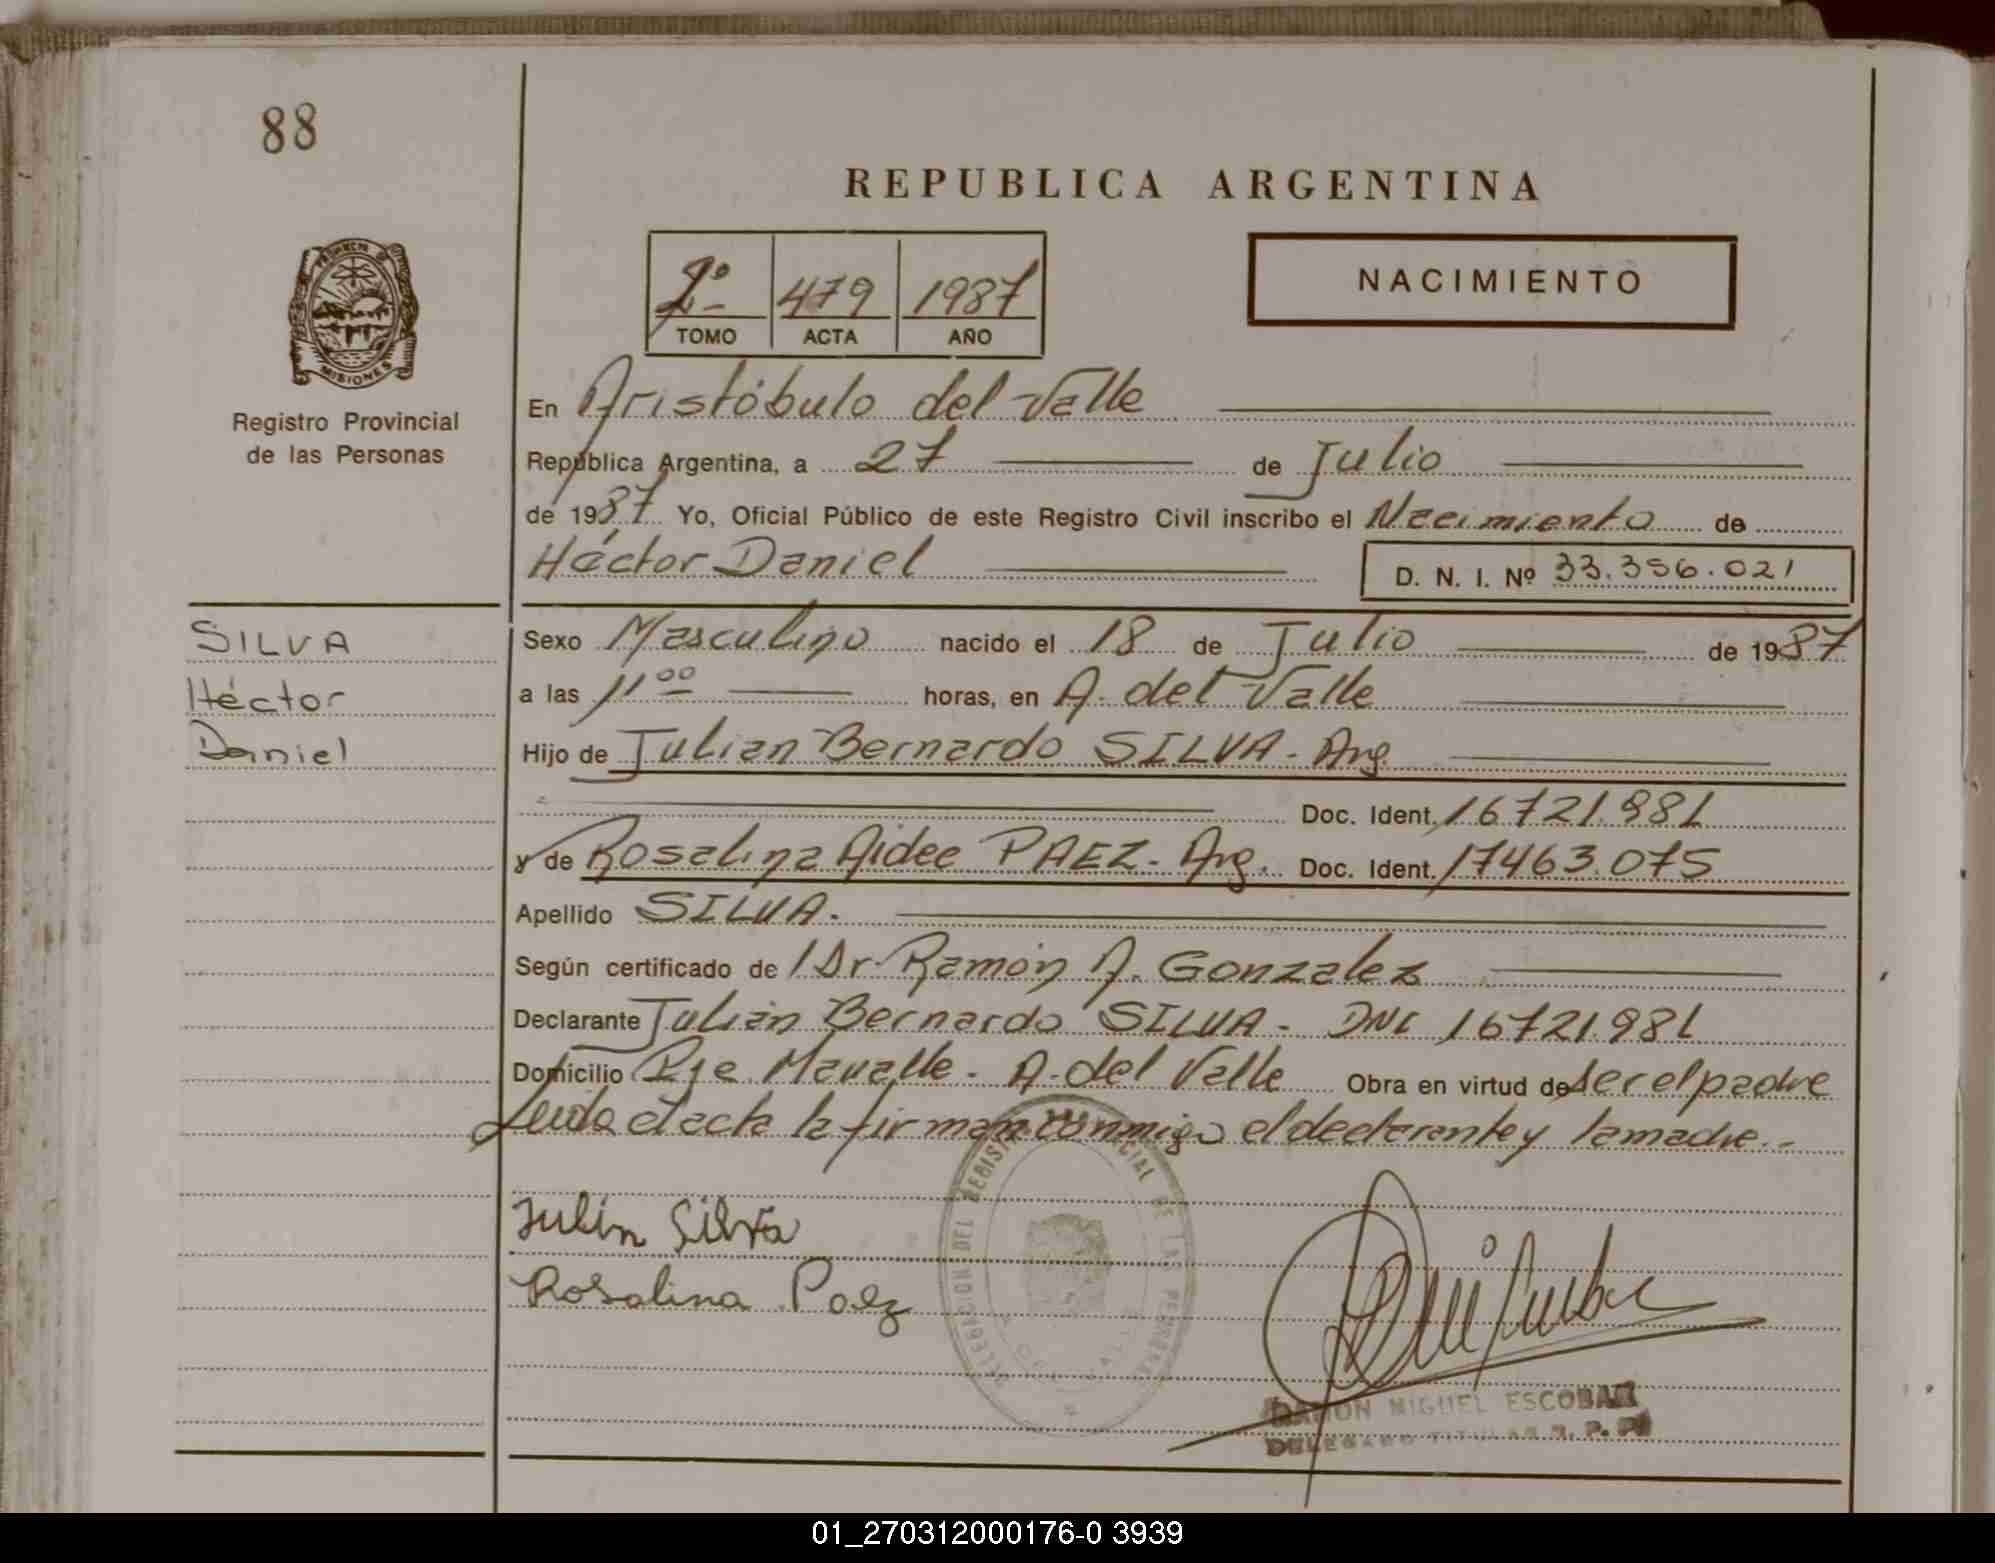 88
REPUBLICA ARGENTINA
2º 479 1987
TOMO ACTA AÑO
NACIMIENTO
MISIONES
Registro Provincial
de las Personas
En Aristóbulo del Valle
República Argentina, a 27 de Julio
de 1987 Yo, Oficial Público de este Registro Civil inscribo el Nacimiento de
Héctor Daniel D. N. I. Nº 33.356.021
SILVA
Héctor
Daniel
Sexo Masculino nacido el 18 de Julio de 1987
a las 11 00 horas, en A. del Valle
Hijo de Julian Bernardo SILVA - Arg.
Doc. Ident. 16721.981
y de Rosalina Aidee PAEZ - Arg. Doc. Ident. 17463.075
Apellido SILVA.
Según certificado de 1 Dr. Ramón A. Gonzalez
Declarante Julián Bernardo SILVA - DNI 16721.981
Domicilio Pje Mavalle - A. del Valle Obra en virtud de ser el padre
Leida el acta la firman conmigo el declarante y la madre.-
Julin Silva
Rosalina Paez
DELEGACION DEL REGISTRO PROVINCIAL DE LAS PERSONAS
RAMON MIGUEL ESCOBAR
DELEGADO TITULAR R. P. P.
01_270312000176-0 3939